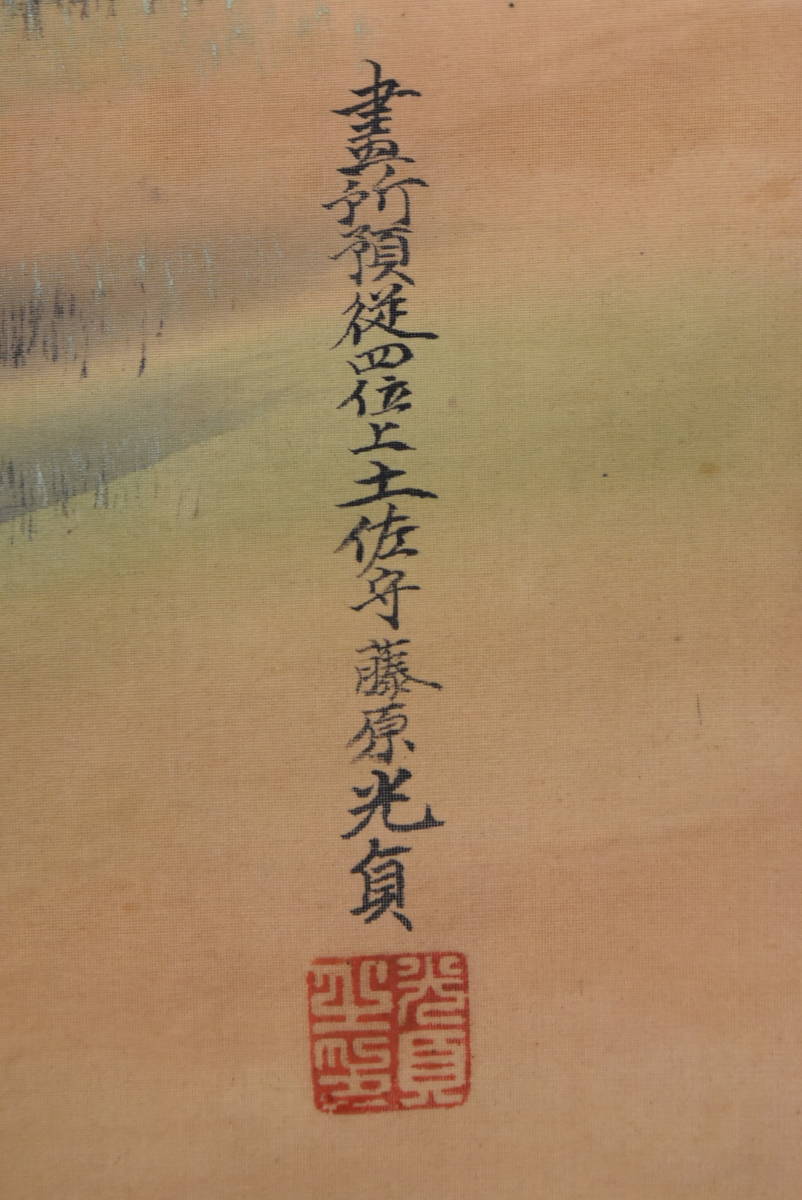 畫所預從四位上土佐守藤原光貞
光貞
之印